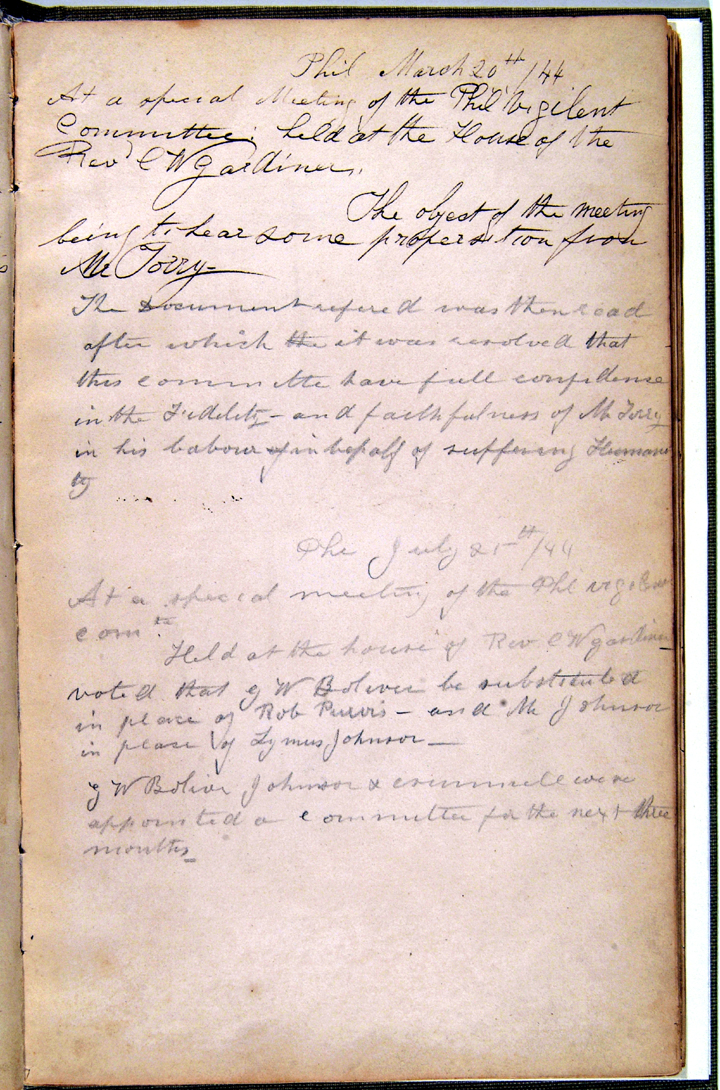 Phil March 20th/44
At a special Meeting of the Phil Vigilent
Committee; held at the House of the
Revd C W Gardiner.
The object of the meeting
being to hear some propersition from
Mr Torry—
The Document refered was then read
after which the it was resolved that
this committe have full confidence
in the Fidelity – and faithfulness of Mr Torry
in his labour in behalf of suffering Humani
ty
Phi July 25th/44
At a special meeting of the Phl vigilent
com
Held at the house of Rev. C W gardiner
voted that g W Boliver be substituted
in place of Rob Purvis – and Mr Johnson
in please of Lymus Johnson —
g W Boliver Johnson & crummell were
appointed a Committee for the next three
months